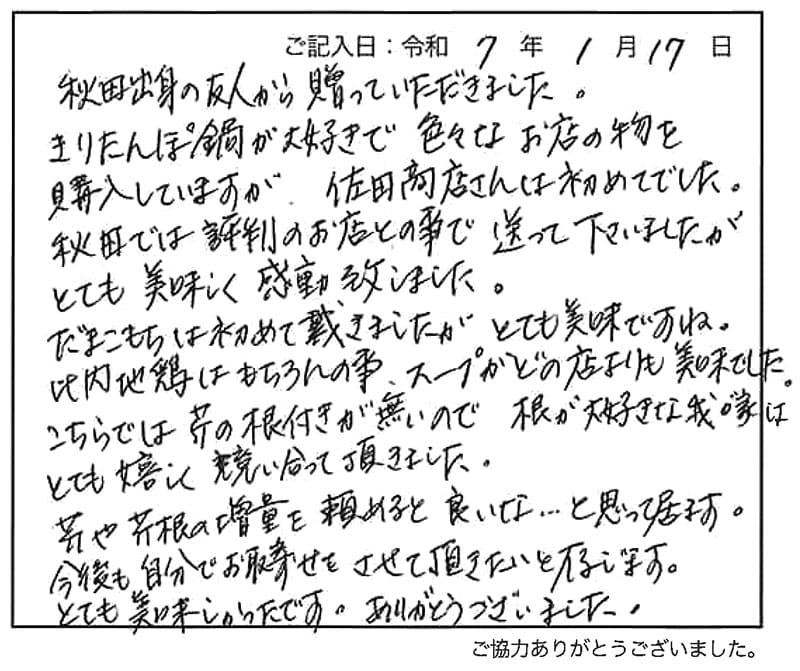 ご記入日：令和 7 年 1 月 17 日
秋田出身の友人から贈っていただきました。
きりたんぽ鍋が大好きで 色々な お店の物を
購入していますが、佐田商店さんは初めてでした。
秋田では評判のお店との事で 送って下さいましたが
とても 美味しく 感動 致しました。
だまこもちは初めて戴きましたが とても美味ですね。
比内地鶏はもちろんの事、スープがどの店よりも 美味でした。
こちらでは 芹の根付きが無いので 根が大好きな我が家は
とても 嬉しく 競い合って頂きました。
芹や芹根の増量を 頼めると 良いな…と思って居ます。
今後も自分でお取寄せを させて頂きたいと存じます。
とても美味しかったです。ありがとうございました。
ご協力ありがとうございました。